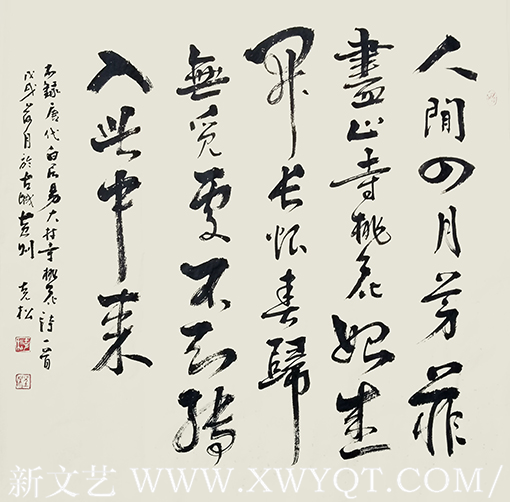 人間四月芳菲
盡山寺桃花始盛
開長恨春歸
無覓處不知轉
入此中來
右録唐代白居易大林寺桃花詩一首
戊戌荷月於古城黄州 克松
新文艺 WWW.XWYQT.COM/